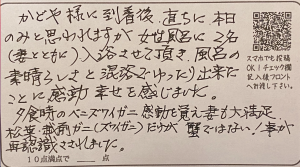 かどや様に到着後、直ちに本日
のみと思われますが女性風呂に2名
(妻とともに)入浴させて頂き、風呂の
素晴らしさと混浴でゆったり出来た
ことに感動、幸せを感じました。
夕食時のベニズワイガニ 感動を覚え妻も大満足、
松葉・越前ガニ(ズワイガニ)だけが蟹ではない!事が
再認識されました。
10点満点で 点
スマホでも投稿
OK!チェック欄
記入後フロント
へお渡し下さい。